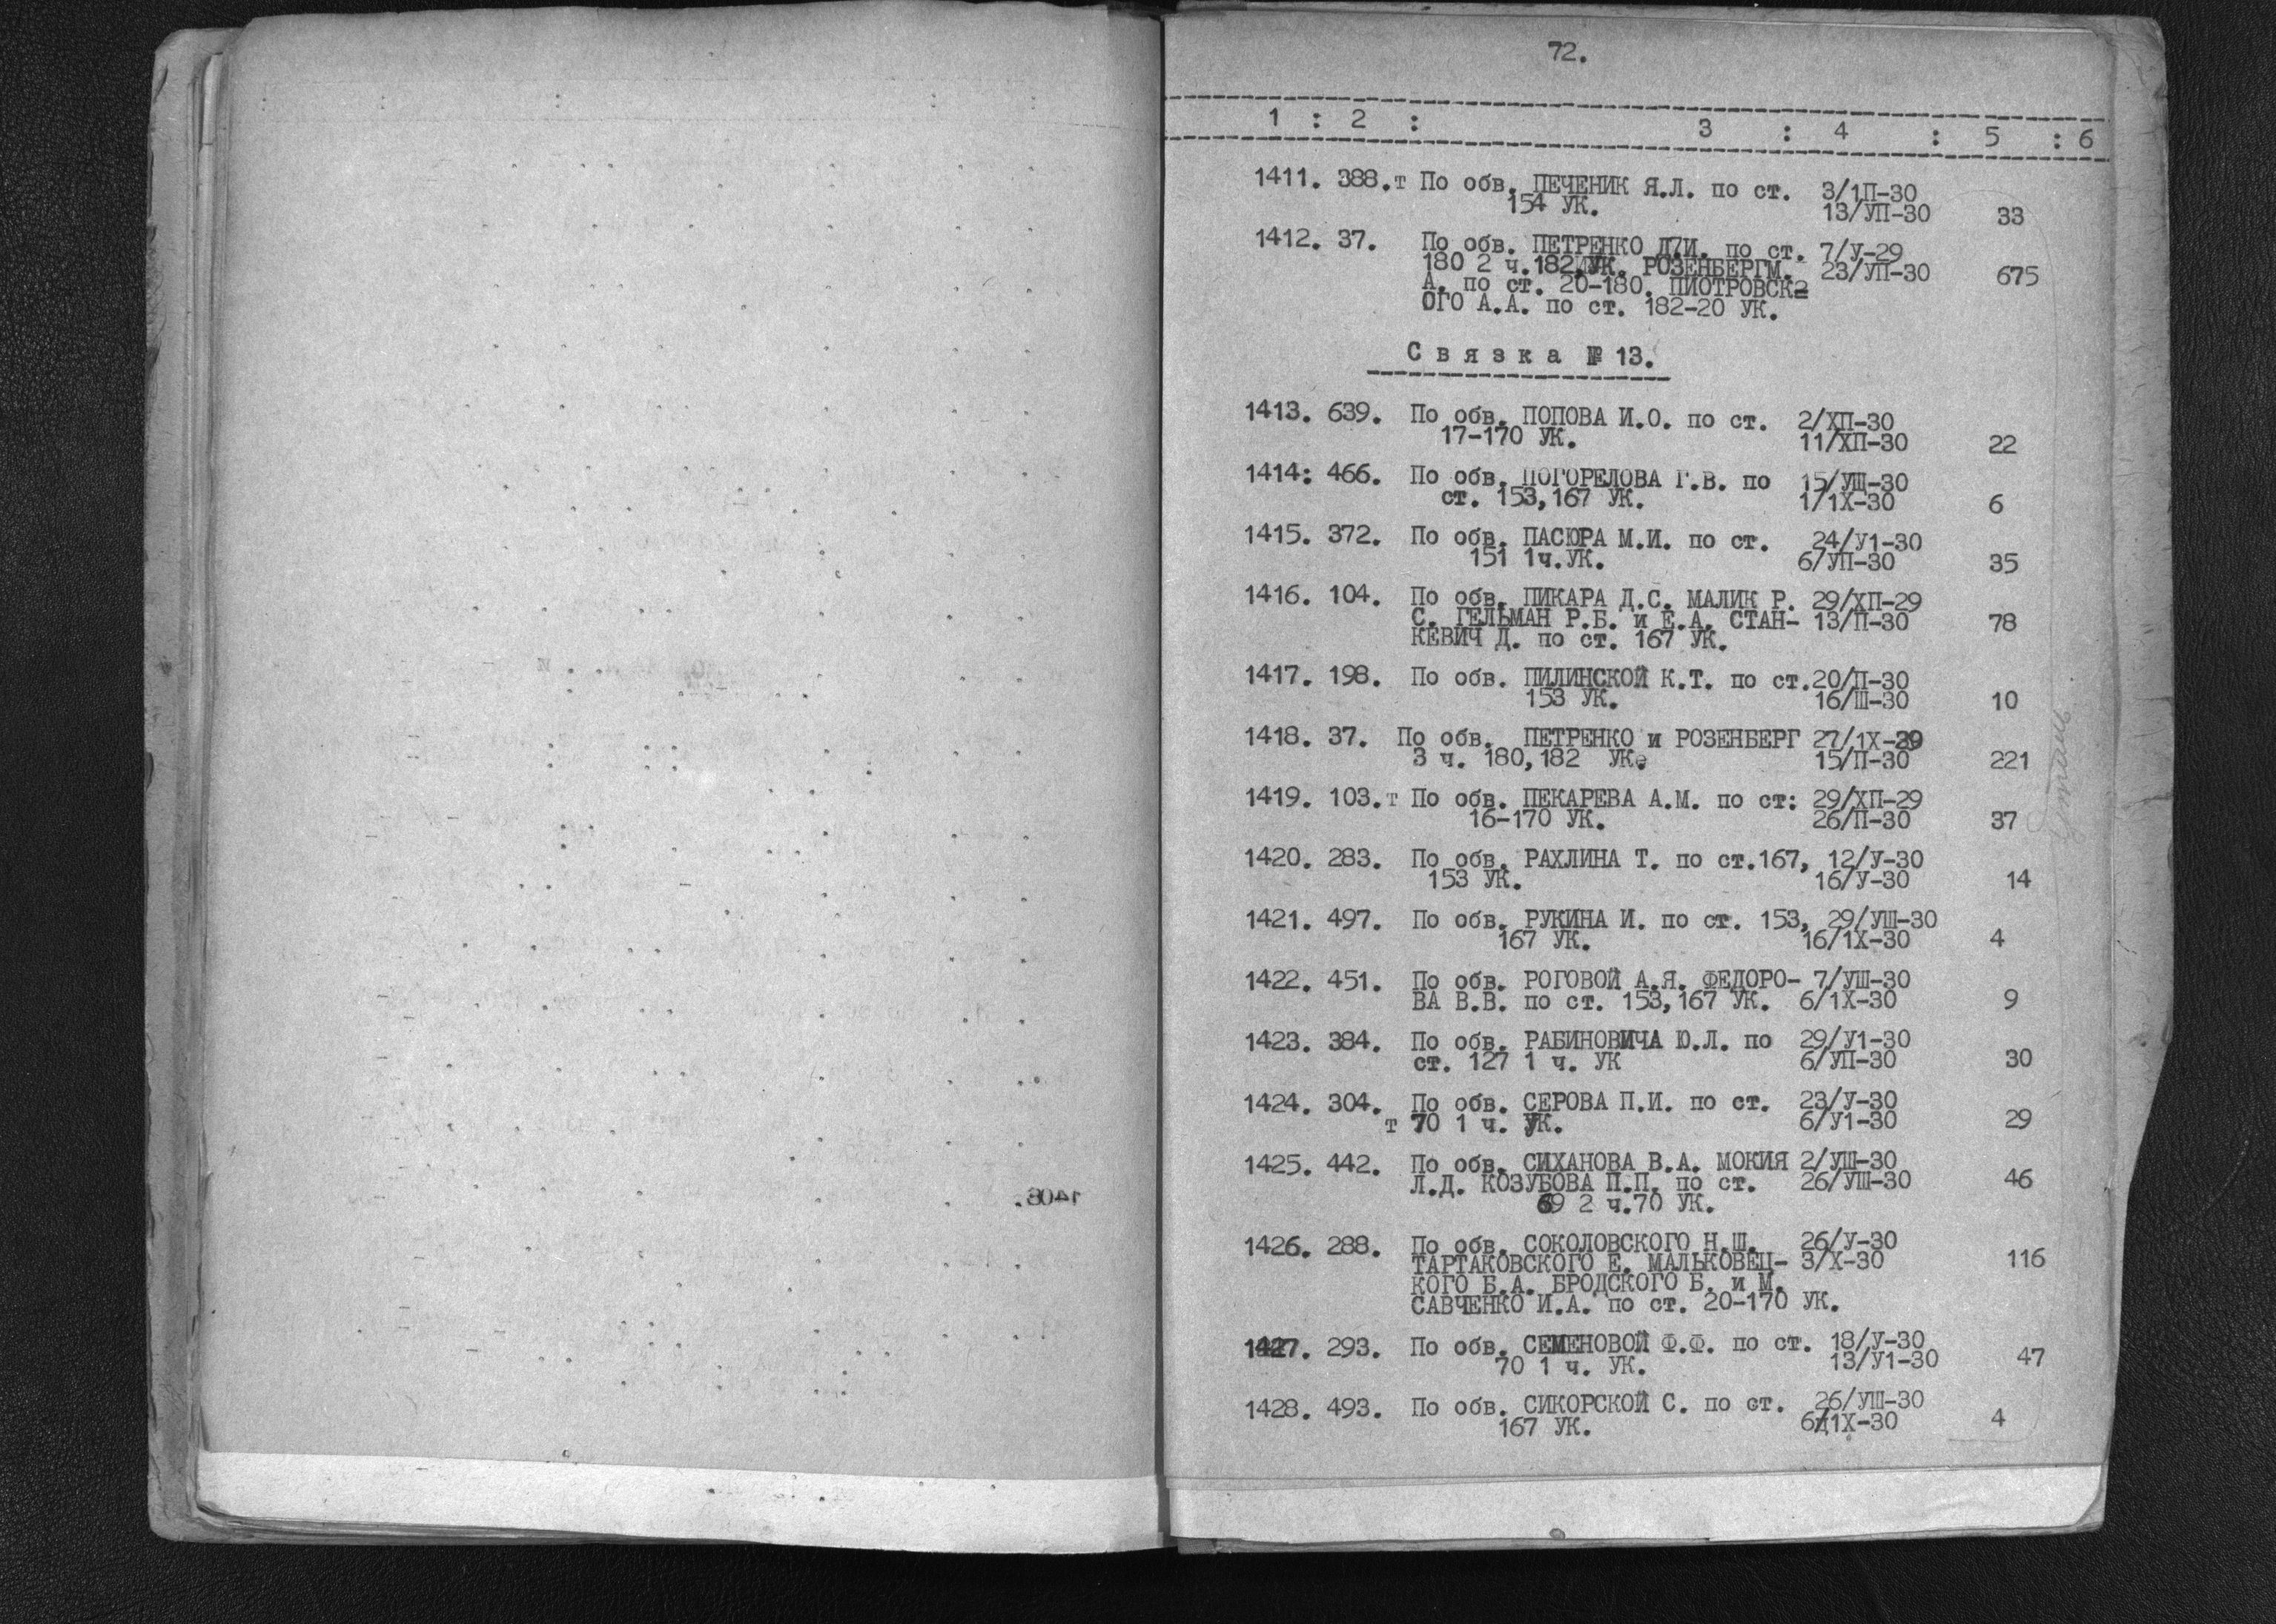 72.
1 : 2 : 3 : 4 : 5 : 6
1411. 388.т По обв. ПЕЧЕНИК Я.Л. по ст. 3/1П-30
154 УК. 13/УП-30 33
1412. 37. По обв. ПЕТРЕНКО Д7И. по ст. 7/У-29
180 2 ч.182,УК. РОЗЕНБЕРГМ. 23/УП-30 675
А. по ст. 20-180. ПИОТРОВСК
ОГО А.А. по ст. 182-20 УК.
Связка № 13.
1413. 639. По обв. ПОПОВА И.О. по ст. 2/ХП-30
17-170 УК. 11/ХП-30 22
1414: 466. По обв. ПОГОРЕЛОВА Г.В. по 15/УШ-30
ст. 153,167 УК. 1/1Х-30 6
1415. 372. По обв. ПАСЮРА М.И. по ст. 24/У1-30
151 1ч.УК. 6/УП-30 35
1416. 104. По обв. ПИКАРА Д.С. МАЛИК Р. 29/ХП-29
С. ГЕЛЬМАН Р.Б. и Е.А. СТАН- 13/П-30 78
КЕВИЧ Д. по ст. 167 УК.
1417. 198. По обв. ПИЛИНСКОЙ К.Т. по ст.20/П-30
153 УК. 16/Ш-30 10
1418. 37. По обв. ПЕТРЕНКО и РОЗЕНБЕРГ 27/1Х-29
3 ч. 180,182 УК. 15/П-30 221
1419. 103.т По обв. ПЕКАРЕВА А.М. по ст: 29/ХП-29
16-170 УК. 26/П-30 37
1420. 283. По обв. РАХЛИНА Т. по ст.167, 12/У-30
153 УК. 16/У-30 14
1421. 497. По обв. РУКИНА И. по ст. 153, 29/УШ-30
167 УК. 16/1Х-30 4
1422. 451. По обв. РОГОВОЙ А.Я. ФЕДОРО- 7/УШ-30
ВА В.В. по ст. 153,167 УК. 6/1Х-30 9
1423. 384. По обв. РАБИНОВИЧА Ю.Л. по 29/У1-30
ст. 127 1 ч. УК 6/УП-30 30
1424. 304. По обв. СЕРОВА П.И. по ст. 23/У-30
т 70 1 ч. УК. 6/У1-30 29
1425. 442. По обв. СИХАНОВА В.А. МОКИЯ 2/УШ-30
Л.Д. КОЗУБОВА П.П. по ст. 26/УШ-30 46
69 2 ч.70 УК.
1426. 288. По обв. СОКОЛОВСКОГО Н.Ш. 26/У-30
ТАРТАКОВСКОГО Е. МАЛЬКОВЕЦ- 3/Х-30 116
КОГО Б.А. БРОДСКОГО Б. и М.
САВЧЕНКО И.А. по ст. 20-170 УК.
1427. 293. По обв. СЕМЕНОВОЙ Ф.Ф. по ст. 18/У-30
70 1 ч. УК. 13/У1-30 47
1428. 493. По обв. СИКОРСКОЙ С. по ст. 26/УШ-30
167 УК. 6/1Х-30 4